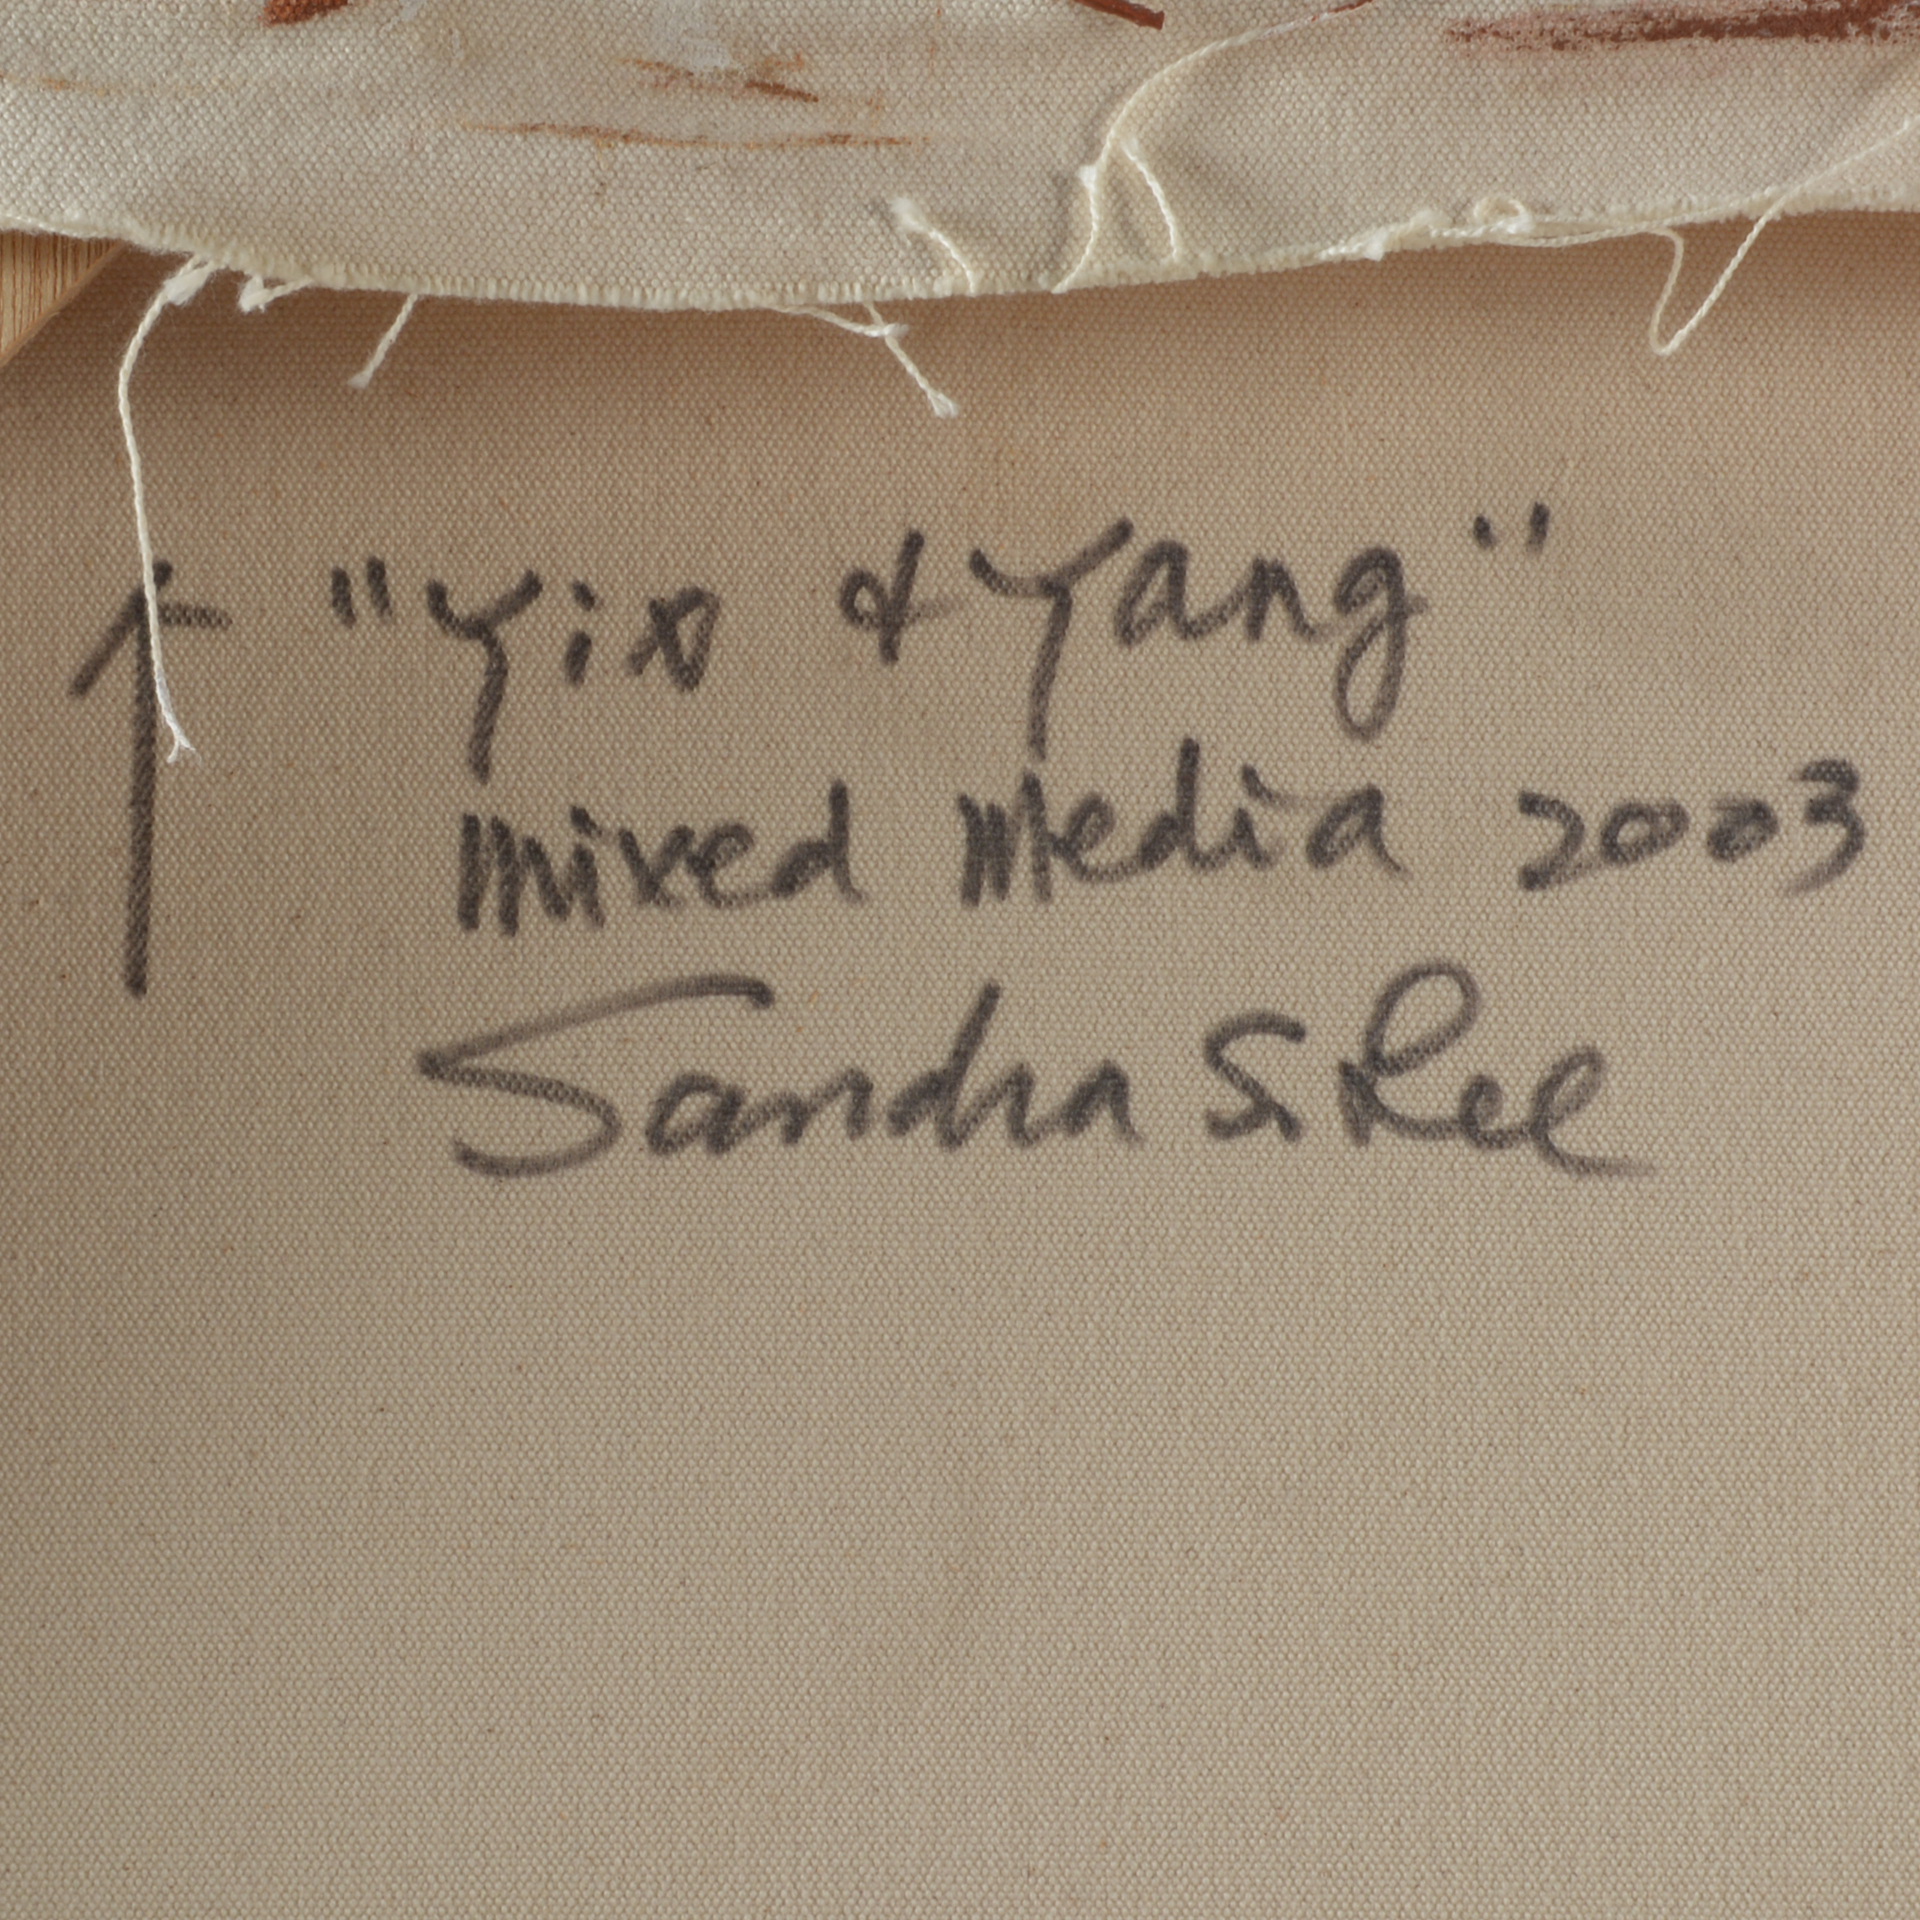 ↑ "Yin & Yang"
Mixed Media 2003
Sandra S. Lee